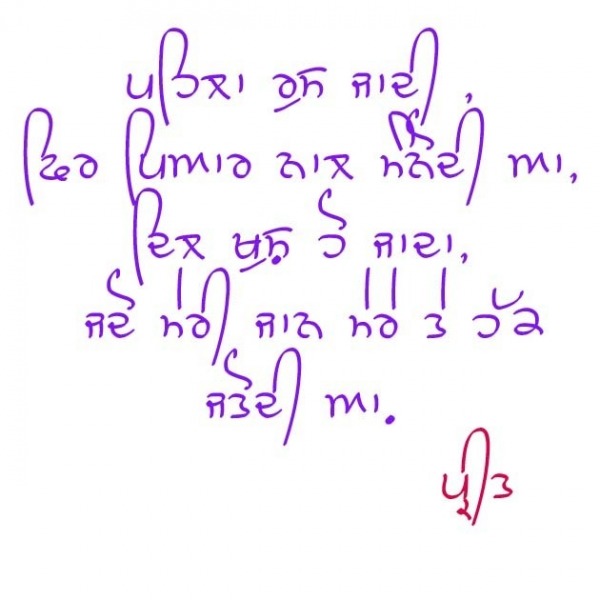 ਪਹਿਲਾ ਰੁਸ ਜਾਦੀ,
ਫਿਰ ਪਿਆਰ ਨਾਲ ਮੰਨੋਦੀ ਆ,
ਦਿਲ ਖੁਸ਼ ਹੋ ਜਾਦਾ,
ਜਦੋ ਮੇਰੀ ਜਾਨ ਮੇਰੇ ਤੇ ਹੱਕ
ਜਤੋਦੀ ਆ.
ਪ੍ਰੀਤ